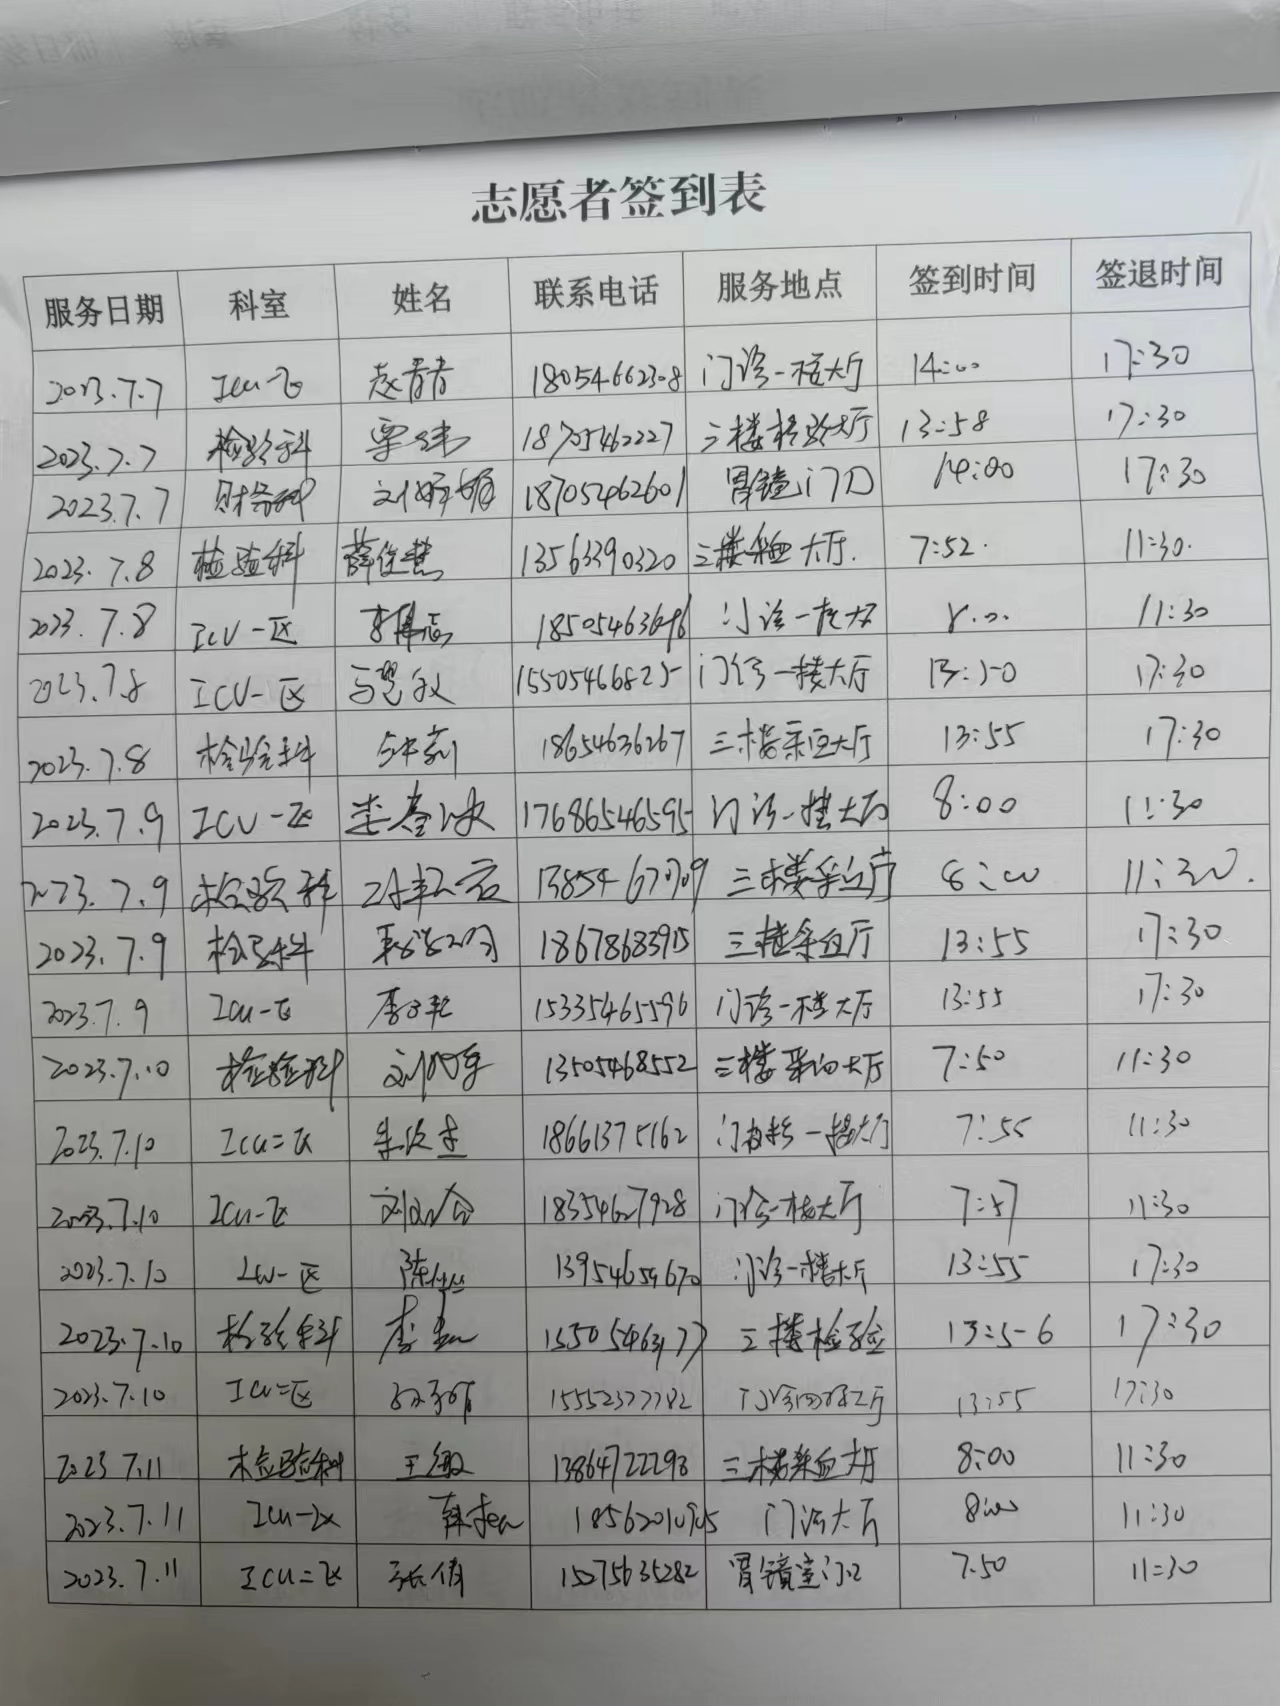 志愿者签到表
服务日期 科室 姓名 联系电话 服务地点 签到时间 签退时间
2023.7.7 ICU一区 赵青青 18054662308 门诊一楼大厅 14:00 17:30
2023.7.7 检验科 18705462227 三楼检验大厅 13:58 17:30
2023.7.7 财务科 18705462601 胃镜门口 14:00 17:30
2023.7.8 检验科 薛佳慧 13563390320 三楼采血大厅. 7:52. 11:30.
2023.7.8 ICU一区 门诊一楼大厅 8:00 11:30
2023.7.8 ICU一区 15505466825 门诊一楼大厅 13:50 17:30
2023.7.8 检验科 18654636267 三楼采血大厅 13:55 17:30
2023.7.9 ICU一区 17686546595 门诊一楼大厅 8:00 11:30
2023.7.9 检验科 三楼采血厅 8:00 11:30.
2023.7.9 检验科 18678683915 三楼采血厅 13:55 17:30
2023.7.9 ICU一区 15335465596 门诊一楼大厅 13:55 17:30
2023.7.10 检验科 13505468552 三楼采血大厅 7:50 11:30
2023.7.10 ICU二区 18661375162 一楼大厅 7:55 11:30
2023.7.10 ICU一区 18354627928 门诊一楼大厅 7:57 11:30
2023.7.10 ICU一区 13954654670 门诊一楼大厅 13:55 17:30
2023.7.10 检验科 李 15505463177 三楼检验 13:56 17:30
2023.7.10 ICU二区 13:55 17:30
2023.7.11 检验科 王敏 13864722293 三楼采血大厅 8:00 11:30
2023.7.11 ICU一区 门诊大厅 8:00 11:30
2023.7.11 ICU二区 张倩 15275635282 胃镜室门口 7.50 11:30